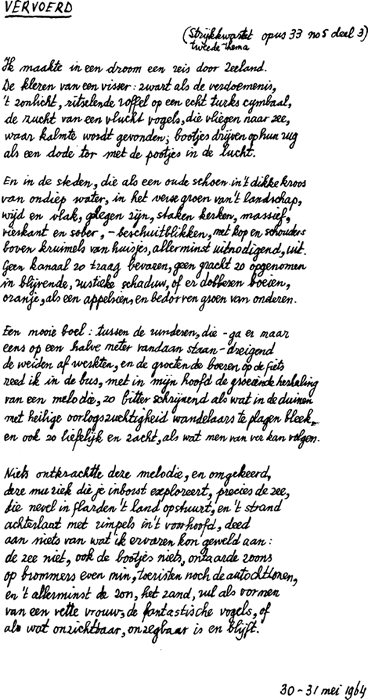 VERVOERD
(Strijkkwartet opus 33 no 5 deel 3)
tweede thema
Ik maakte in een droom een reis door Zeeland.
De kleren van een visser: zwart als de verdoemenis,
't zonlicht, ritselende roffel op een echt turks cymbaal,
de zucht van een vlucht vogels, die vliegen naar zee,
waar kalmte wordt gevonden; bootjes drijven op hun rug
als een dode tor met de pootjes in de lucht.
En in de steden, die als een oude schoen in 't dikke kroos
van ondiep water, in het verse groen van 't landschap,
wijd en vlak, gelegen zijn, staken kerken, massief,
vierkant en sober, – beschuitblikken, met kop en schouders
boven kruimels van huisjes, allerminst uitnodigend, uit.
Geen kanaal zo traag bevaren, geen gracht zo opgenomen
in blijvende, rustieke schaduw, of er dobberen boeien,
oranje, als een appelsien, en bedorven groen van onderen.
Een mooie boel: tussen de runderen, die – ga er maar
eens op een halve meter vandaan staan – dreigend
de weiden af werkten, en de groetende boeren op de fiets
reed ik in de bus, met in mijn hoofd de groeiende herhaling
van een melodie, zo bitter schrijnend als wat in de duinen
met heilige oorlogszuchtigheid wandelaars te plagen bleek,
en ook zo liefelijk en zacht, als wat men van ver kan volgen.
Niets ontkrachtte deze melodie, en omgekeerd,
deze muziek die je inborst exploreert, precies de zee,
die nevel in flarden 't land opstuurt, en 't strand
achterlaat met rimpels in 't voorhoofd, deed
aan niets van wat ik ervaren kon geweld aan:
de zee niet, ook de bootjes niets, ontaarde zoons
op brommers even min, toeristen noch de autochtonen,
en 't allerminst de zon, het zand, vul als vormen
van een vette vrouw, de fantastische vogels, of
als wat onzichtbaar, onzegbaar is en blijft.
30-31 mei 1964